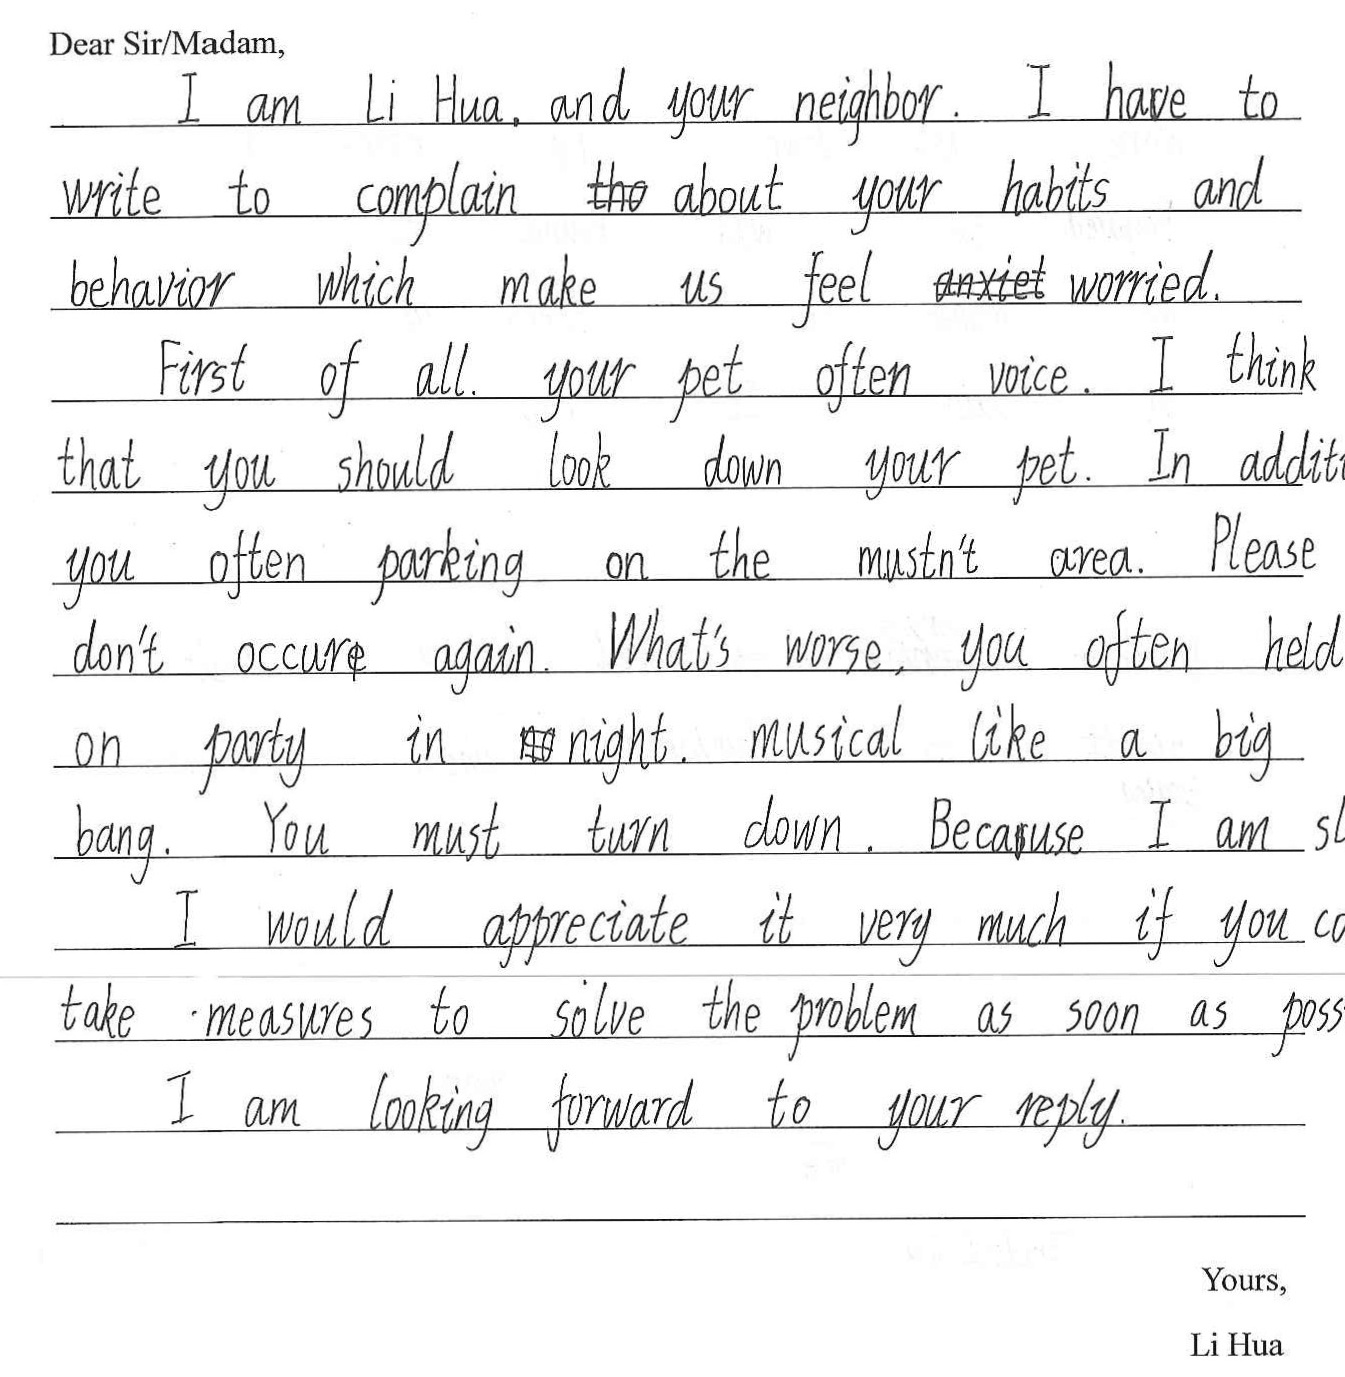 Dear Sir/Madam,
I am Li Hua, and your neighbor. I have to
write to complain about your habits and
behavior which make us feel worried.
First of all. your pet often voice. I think
that you should look down your pet. In
you often parking on the mustn't area. Please
don't occure again. What's worse, you often held
on party in night. musical like a big
bang. You must turn down. Because I am
I would appreciate it very much if you
take measures to solve the problem as soon as
I am looking forward to your reply.
Yours,
Li Hua